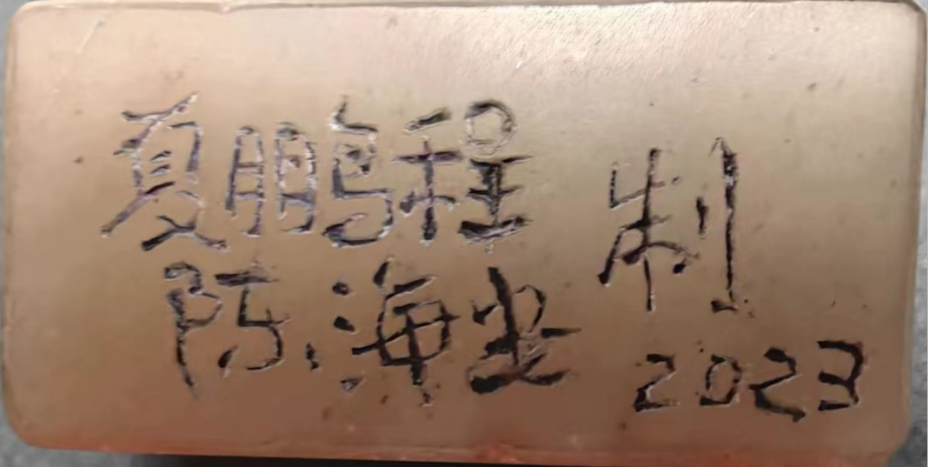 夏鹏程 制
陈海
2023